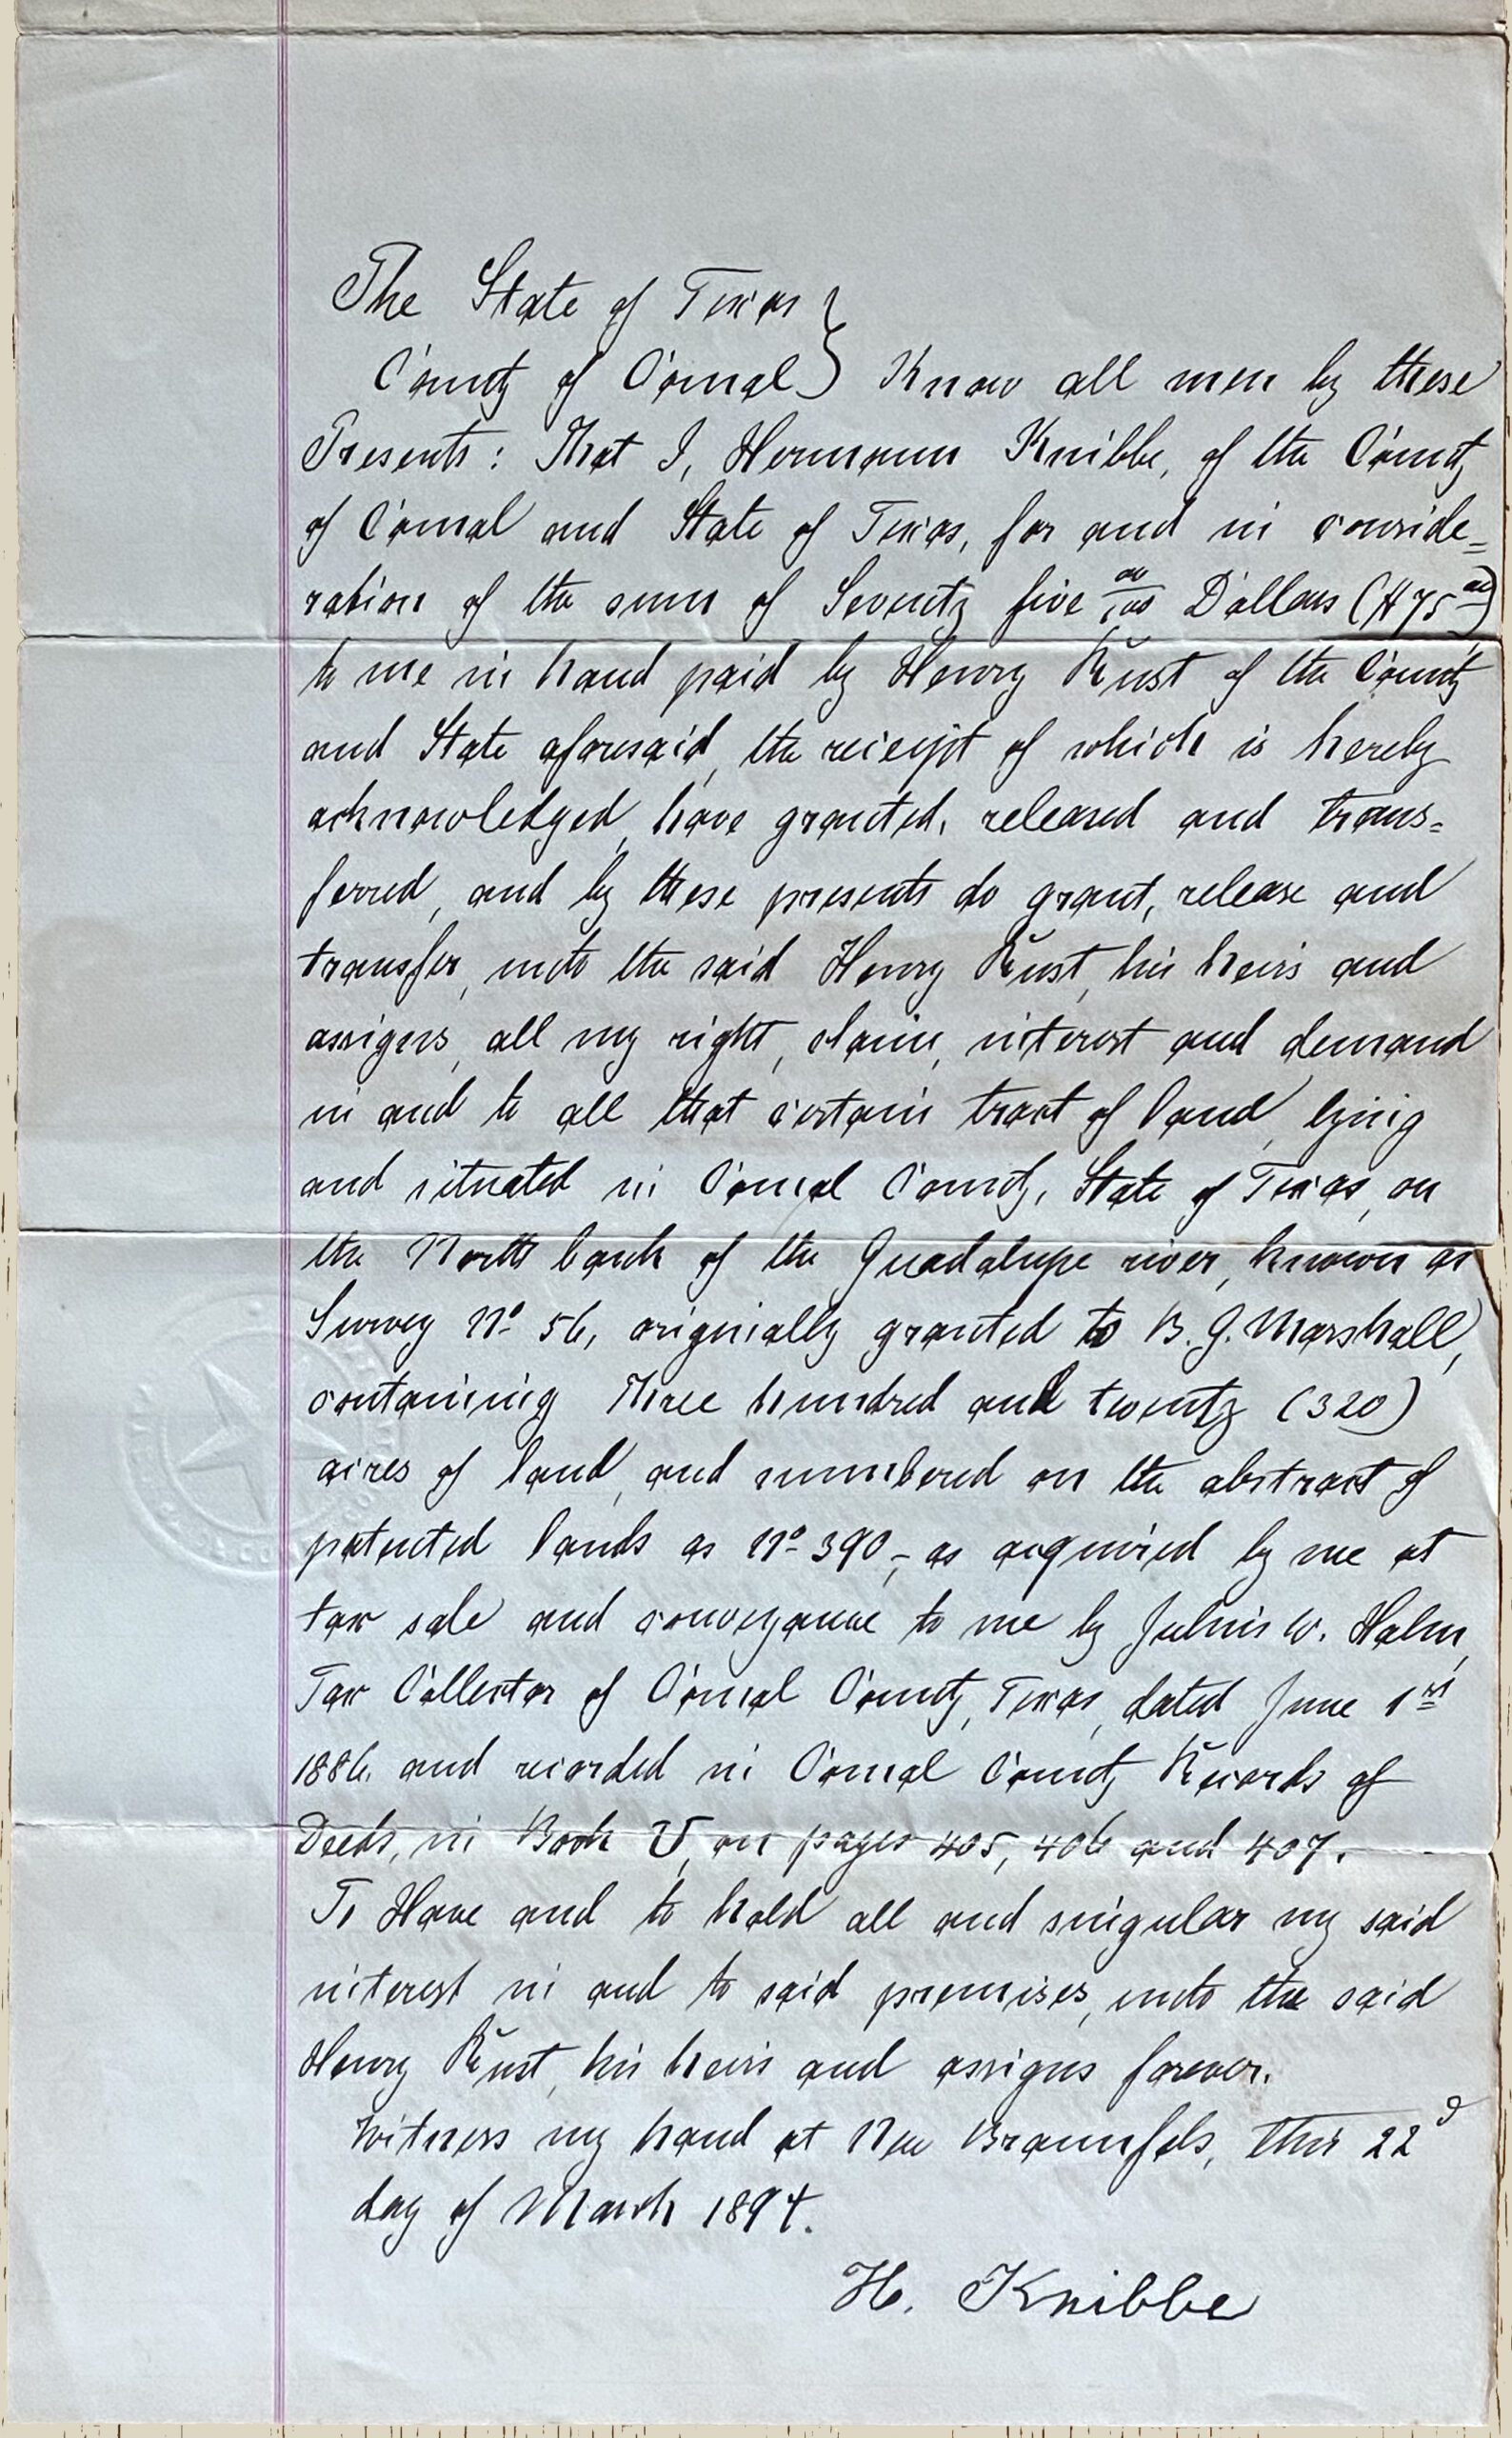 The State of Texas }
County of Comal } Know all men by these
Presents: That I, Hermann Knibbe, of the County
of Comal and State of Texas, for and in conside=
ration of the sum of Seventy five oo/100 Dollars ($75 oo)
to me in hand paid by Henry Rust of the County
and State aforesaid, the receipt of which is hereby
acknowledged, have granted, released and trans=
ferred, and by these presents do grant, release and
transfer, unto the said Henry Rust, his heirs and
assigns, all my right, claim, interest and demand
in and to all that certain tract of land, lying
and situated in Comal County, State of Texas, on
the North bank of the Guadalupe river, known as
Survey No. 56, originally granted to B. G. Marshall,
containing Three hundred and twenty (320)
acres of land, and numbered on the abstract of
patented lands as No. 390,- as acquired by me at
tax sale and conveyance to me by Julius W. Halm,
Tax Collector of Comal County, Texas, dated June 1st
1886. and recorded in Comal County Records of
Deeds, in Book U, on pages 405, 406 and 407.
To Have and to hold all and singular my said
interest in and to said premises, unto the said
Henry Rust, his heirs and assigns forever.
Witness my hand at New Braunfels, this 22d
day of March 1894.
H. Knibbe